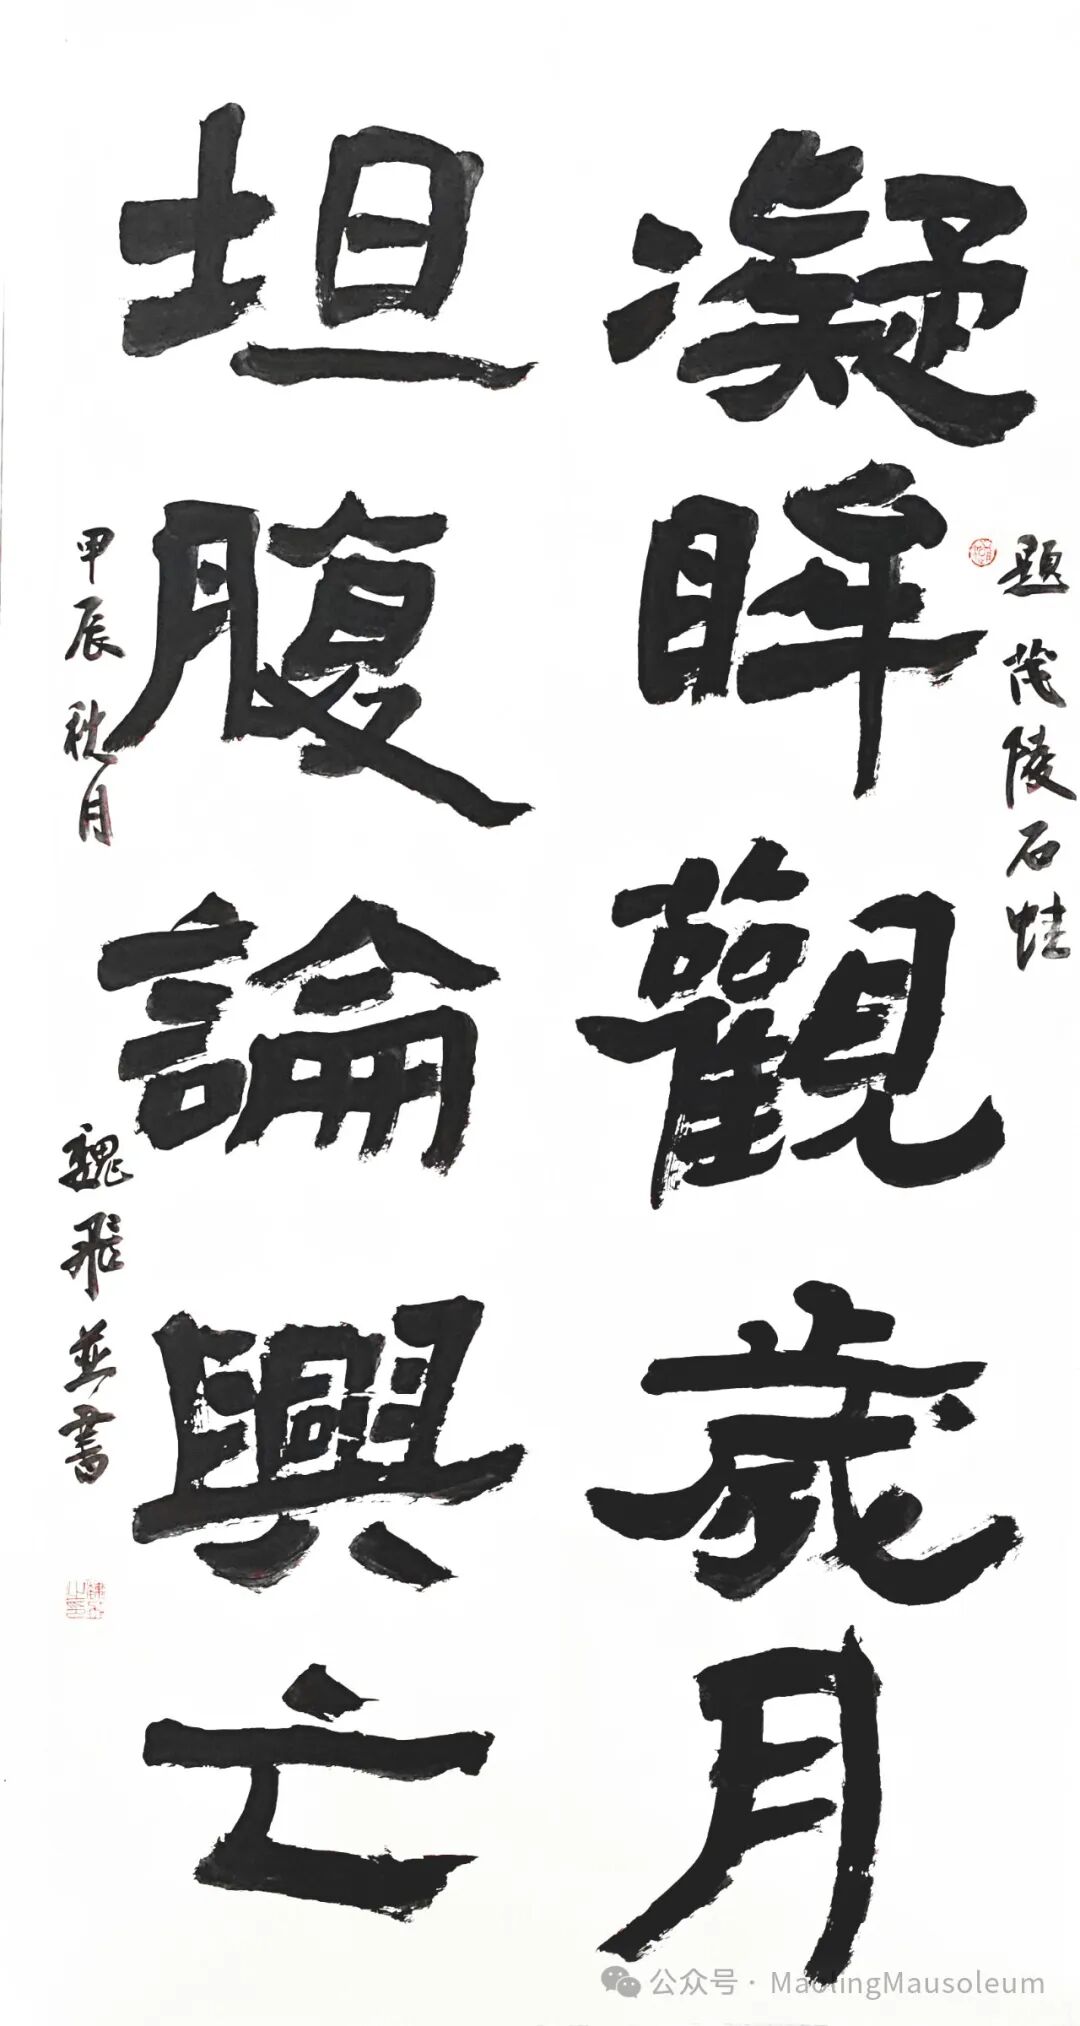 題茂陵石蛙
凝眸觀歲月
坦腹論興亡
甲辰秋月
魏飛並書
公众号 · MaolingMausoleum